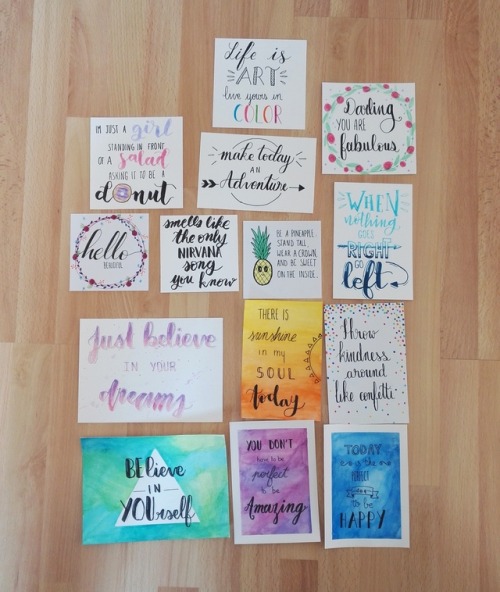 Life is
ART
live yours in
COLOR
Darling
YOU ARE
fabulous
I'M JUST A girl
STANDING IN FRONT
OF A salad
ASKING IT TO BE A
donut
make today
AN
Adventure
WHEN
nothing
GOES
RIGHT
GO
left
hello
BEAUTIFUL
smells like
the only
NIRVANA
song
you know
BE A PINEAPPLE.
STAND TALL,
WEAR A CROWN,
AND BE SWEET
ON THE INSIDE.
Just believe
IN YOUR
dreams
THERE IS
sunshine
in my
SOUL
today
throw
kindness
around
like confetti
BElieve
IN
YOUrself
YOU DON'T
have to be
perfect
to be
Amazing
TODAY
is the
PERFECT
DAY
to be
HAPPY